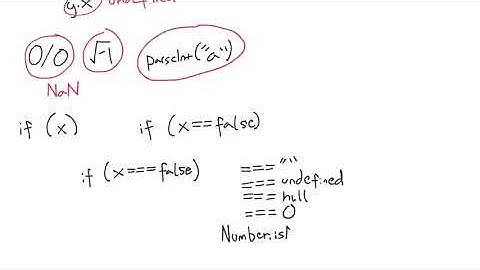 y.x undefined
0/0 √-1 parseInt("a")
NaN
if (x) if (x==false)
if (x===false) === ""
=== undefined
=== null
=== 0
Number.isf